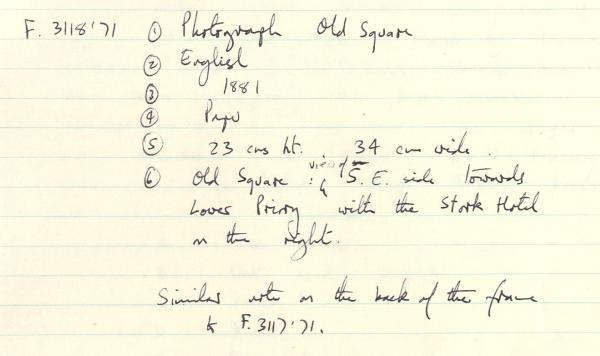 F. 3118'71 ① Photograph Old Square
② English
③ 1881
④ Paper
⑤ 23 cms ht. 34 cms wide.
⑥ Old Square : view of S.E. side towards
Lower Priory with the Stork Hotel
on the right.
Similar note on the back of the frame
to F. 3117'71.